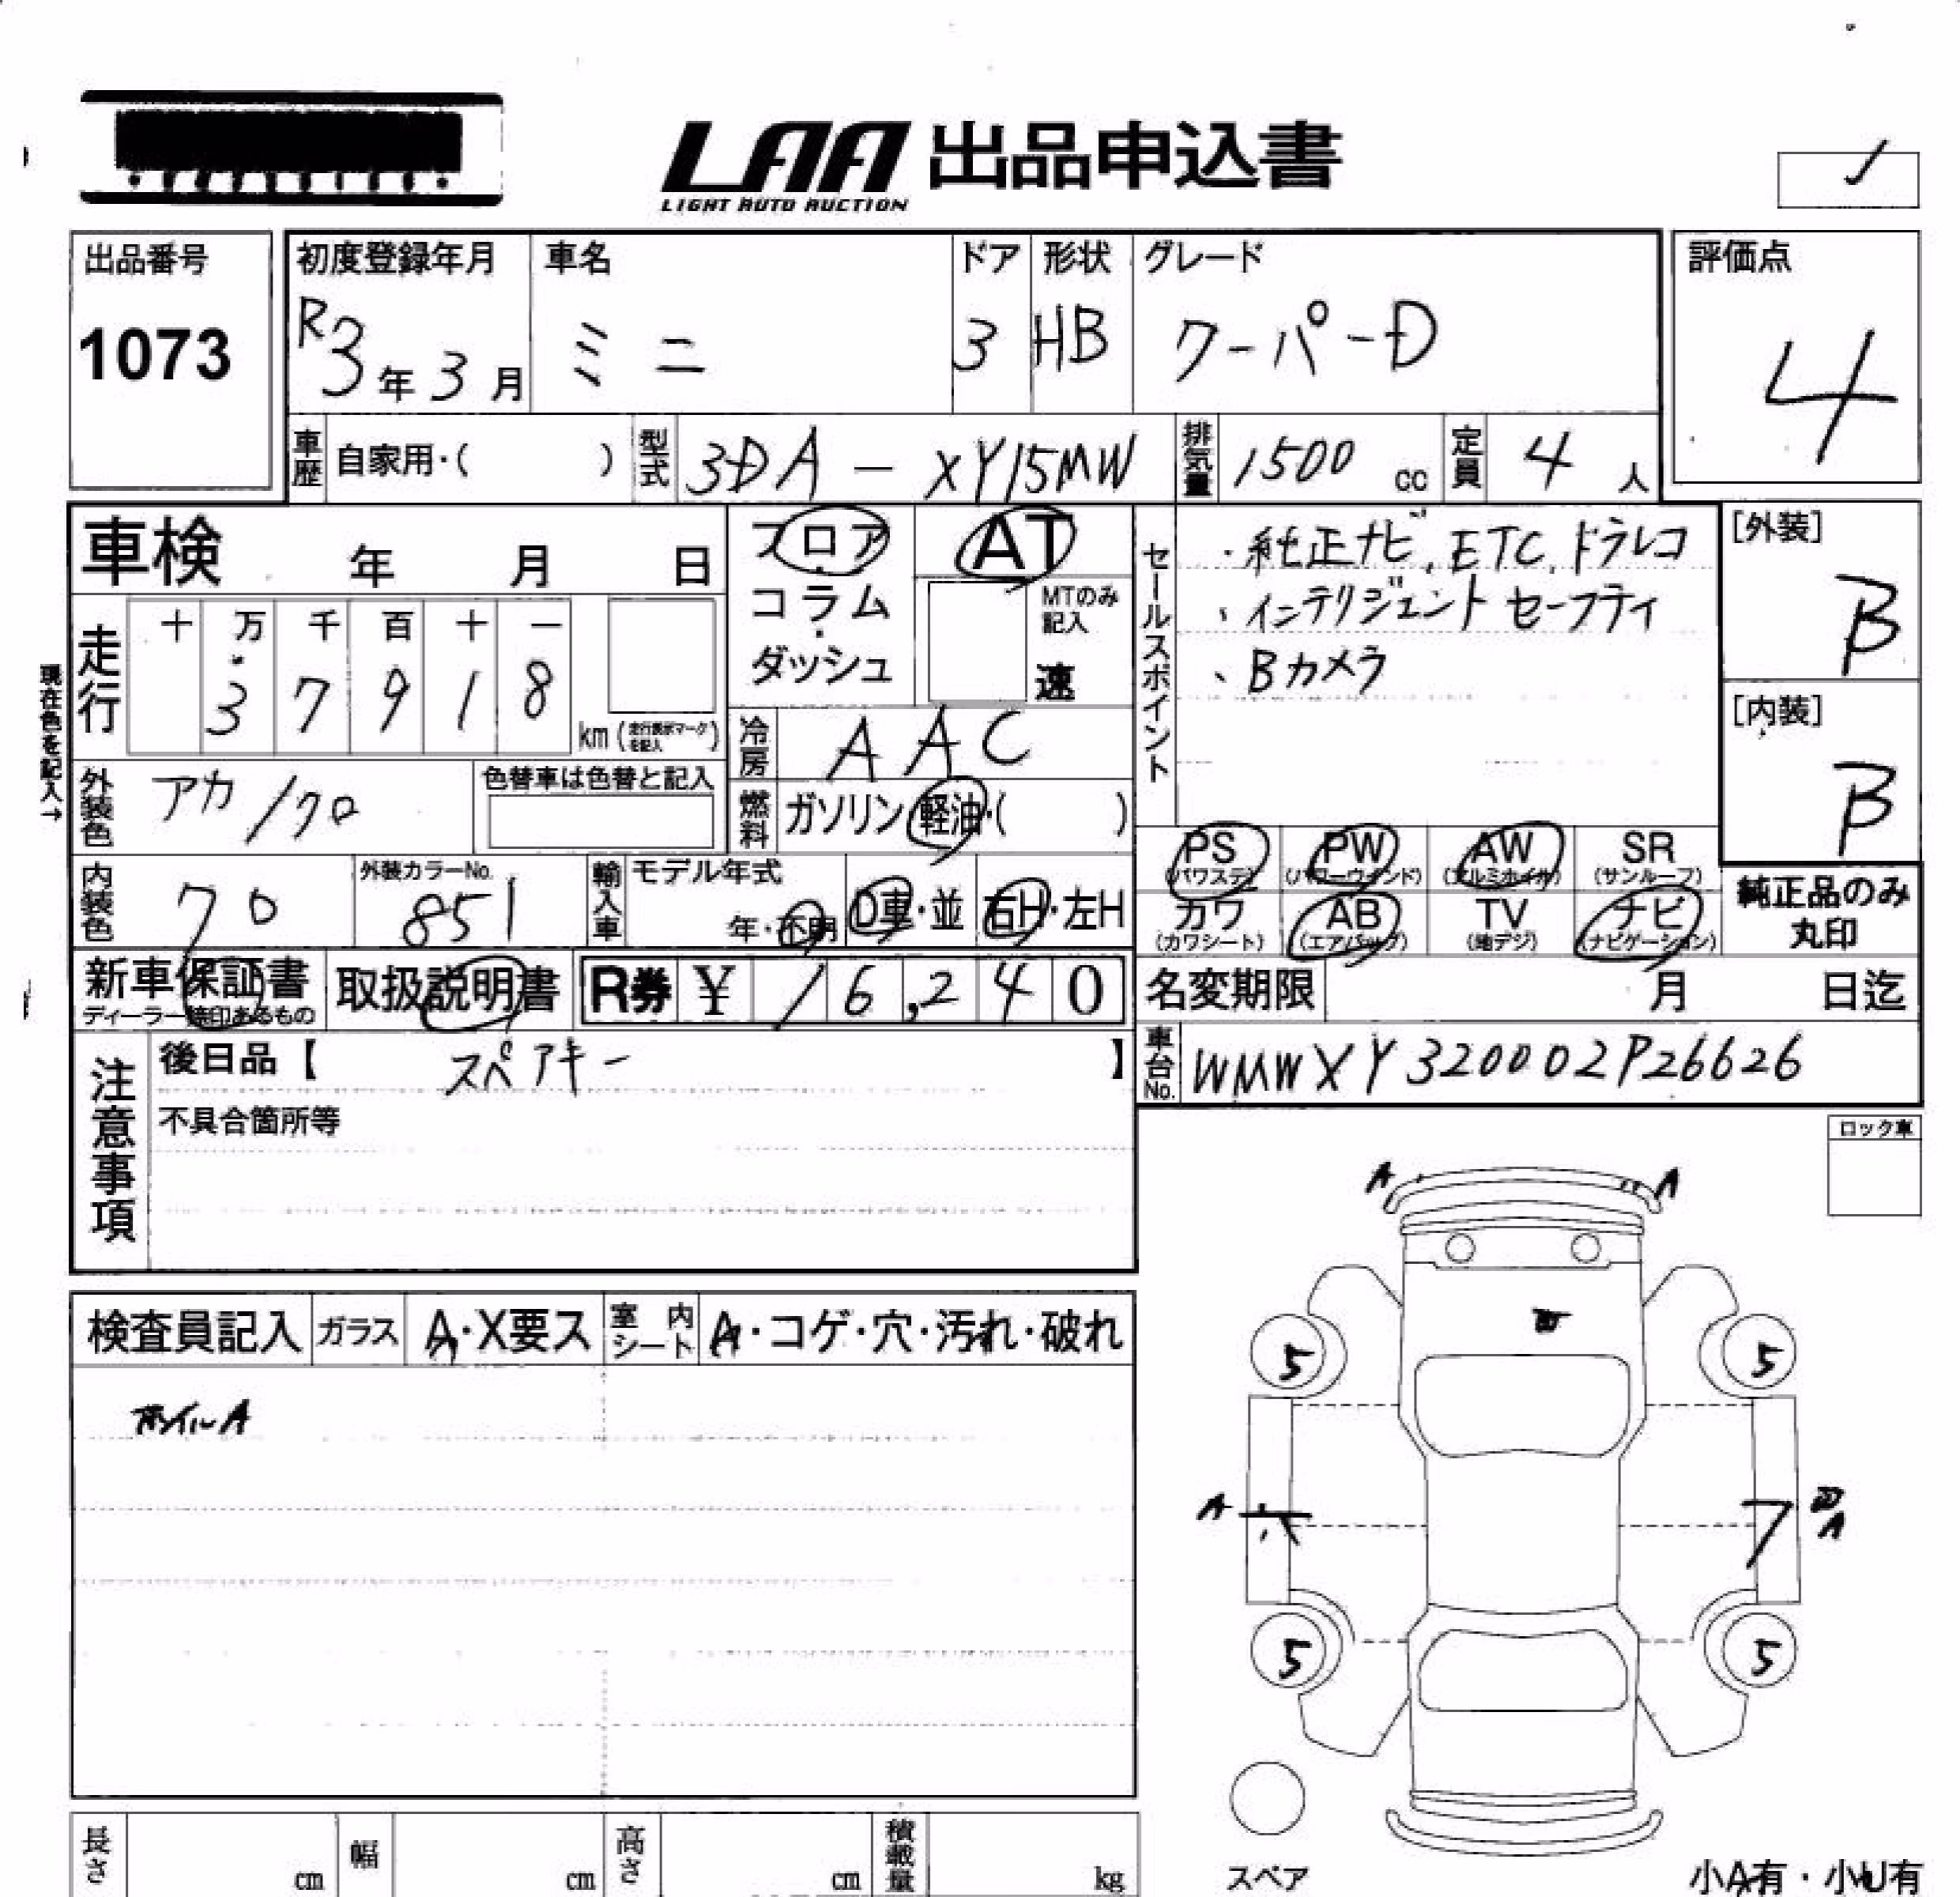 LAA 出品申込書
LIGHT AUTO AUCTION
出品番号 初度登録年月 車名 ドア 形状 グレード 評価点
1073 R3年3月 ミニ 3 HB クーパーD 4
車歴 自家用・( ) 型式 3DA - XY15MW 排気量 1500 cc 定員 4 人
車検 年 月 日
フロア
コラム
ダッシュ
AT
MTのみ
記入
速
セールスポイント
・純正ナビ、ETC、ドラレコ
・インテリジェント セーフティ
・Bカメラ
[外装]
B
[内装]
B
現在色を記入→
走行 十 万 千 百 十 一
3 7 9 1 8
km (走行表示マークを記入)
冷房 AAC
外装色 アカ/クロ
色替車は色替と記入
燃料 ガソリン・軽油・( )
内装色 クロ
外装カラーNo.
851
輸入車 モデル年式
年・不明 D車・並 右H・左H
PS PW AW SR
(パワステ) (パワーウインド) (アルミホイル) (サンルーフ)
カワ AB TV ナビ
(カワシート) (エアバッグ) (地デジ) (ナビゲーション)
純正品のみ
丸印
新車保証書
ディーラー捺印あるもの
取扱説明書 R券 ¥ 16,240
名変期限 月 日迄
車台No. WMWXY320002P26626
注意事項
後日品【 スペアキー 】
不具合箇所等
ロック車
検査員記入 ガラス A・X要ス 室内シート A・コゲ・穴・汚れ・破れ
ホイルA
A A
5 5
A A
5 5
スペア
小A有・小U有
長さ cm 幅 cm 高さ cm 積載量 kg